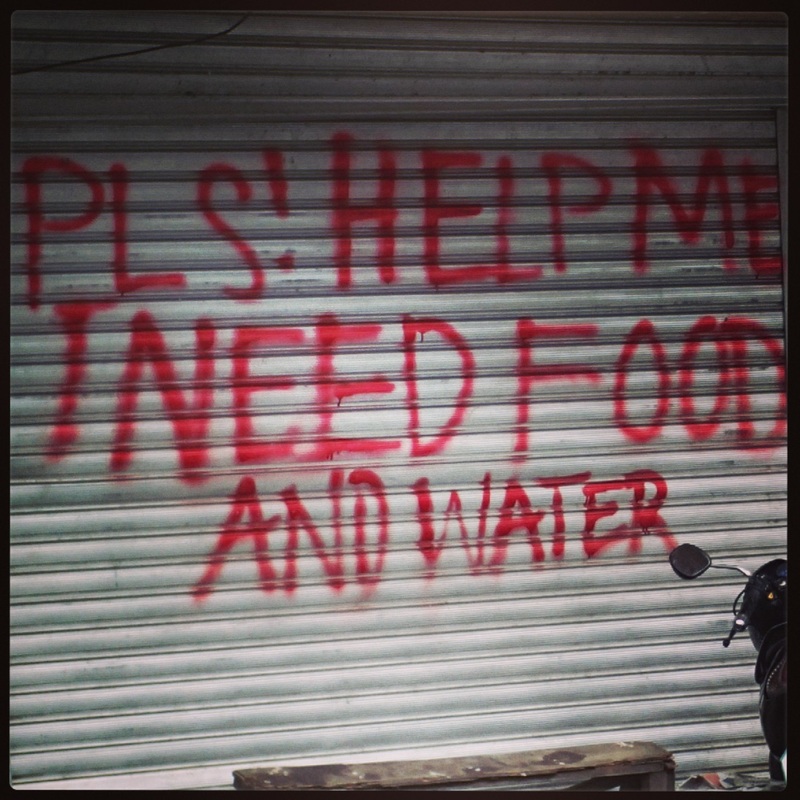 PLS! HELP ME
I NEED FOOD
AND WATER